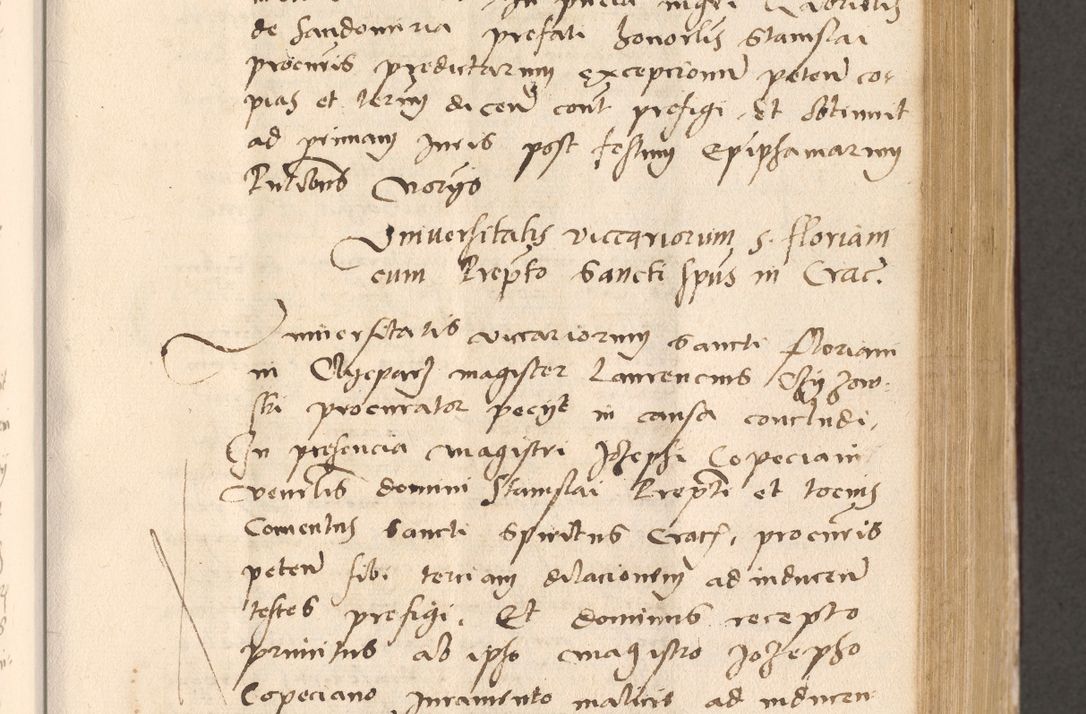 de Sandomiria prefati honorabilis Stanislai
procuris predictarum excepcionum peten co-
pias et termin dicen cont prefigi, et obtinuit
ad primam Iuris post festum Epiphaniarum
Universitatis viccariorum S. Floriani
cum Prepto Sancti Spus in Crac.
Universitatis viccariorum Sancti Floriani
in Clepar magister Laurencius
ski procurator peciit in causa concludi,
In presencia magistri Josephi Copeciani
venrlis domini Stanislai Prepti et tocius
Conventus Sancti Spiritus Crac, procuris
peten sibi terciam dilacionem ad inducen
testes prefigi. Et dominus recepto
primitus ab ipso magistro Josepho
Copeciano Iuramento malicie ad inducen